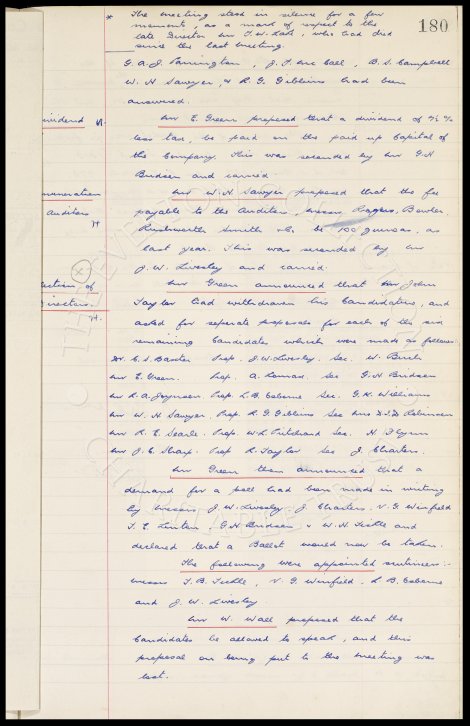 180
* The meeting stood in silence for a few
moments, as a mark of respect to the
late Director Mr T.W. , who had died
since the last meeting.
G.A.J. , J.F. Mc Call, B.S. Campbell
W.H Sawyer, & R.G. Gibbins had been
answered.
Mr E. Green proposed that a dividend of %
less tax, be paid on the paid up Capital of
the Company. This was seconded by Mr G.H
Budsen and carried.
Mr W.H. Sawyer proposed that the fee
payable to the Auditors, Messrs Rogers, Bowler
Rushworth Smith & Co. be 100 guineas, as
last year. This was seconded by Mr
J.W. Livesley and carried.
Mr Green announced that Mr John
Taylor had withdrawn his Candidature, and
asked for separate proposals for each of the six
remaining Candidates which were made as follows
Mr. C.S. Baxter Prop. J.W. Livesley. Sec. W. Burch
Mr E. Green. Prop. A. Lomax Sec G.H Budsen
Mr R.A. Joynson. Prop. L.B. Osborne Sec. G.K. Williams
Mr W.H. Sawyer. Prop. R.G. Gibbins Sec Robinson
Mr R.E. Searle. Prop. W.L. Pritchard Sec. H Flynn
Mr J.C. Sharp. Prop R. Taylor Sec J. Charters.
Mr Green then announced that a
demand for a poll had been made in writing
by Messrs J.W. Livesley J. Charters. V.G. Winfield
T.E. Linton, G.H Budsen & W.H Tickle and
declared that a Ballot would now be taken.
The following were appointed scrutineers:-
Messrs T.B. Tickle, V.G. Winfield, L B. Osborne
and J.W. Livesley
Mr W. Wall proposed that the
Candidates be allowed to speak, and this
proposal on being put to the meeting was
lost.
ividend
uneration
Auditors
ection of
irectors.